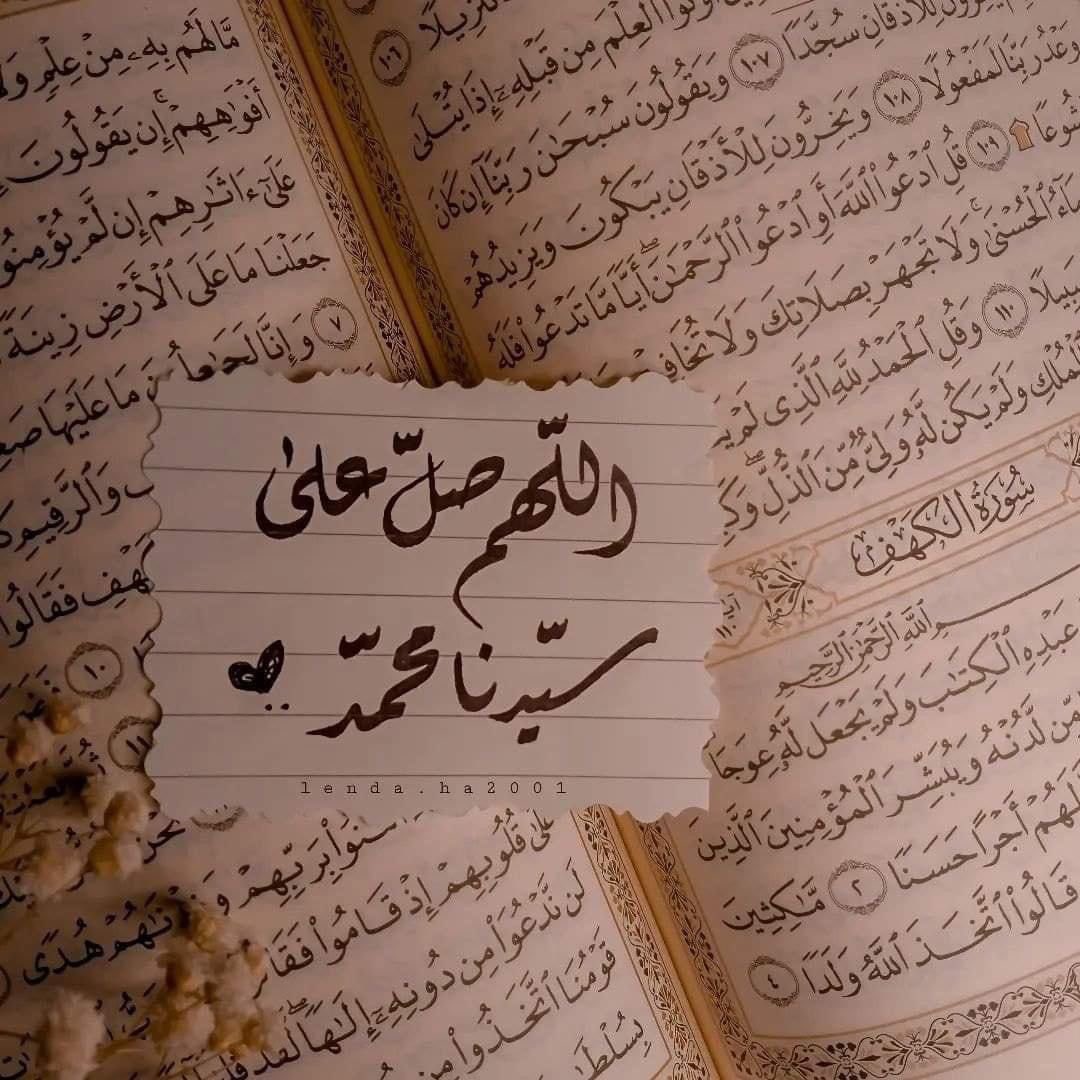 اللّهم صلّ على
سيّدنا محمّد
lenda.ha2001
تنزيلا ١٠٦
أوتوا ٱلْعِلْمَ مِن قَبْلِهِۦٓ إِذَا يُتْلَىٰ
لِلْأَذْقَانِ سُجَّدًا ١٠٧ وَيَقُولُونَ سُبْحَٰنَ رَبِّنَآ إِن كَانَ
وَعْدُ رَبِّنَا لَمَفْعُولًا ١٠٨ وَيَخِرُّونَ لِلْأَذْقَانِ يَبْكُونَ وَيَزِيدُهُمْ
١٠٩ قُلِ ٱدْعُوا۟ ٱللَّهَ أَوِ ٱدْعُوا۟ ٱلرَّحْمَٰنَ أَيًّا مَّا تَدْعُوا۟ فَلَهُ
ٱلْحُسْنَىٰ وَلَا تَجْهَرْ بِصَلَاتِكَ وَلَا تُخَافِتْ
١١٠ وَقُلِ ٱلْحَمْدُ لِلَّهِ ٱلَّذِى لَمْ
ٱلْمُلْكِ وَلَمْ يَكُن لَّهُۥ وَلِىٌّ مِّنَ ٱلذُّلِّ
سُورَةُ الكَهْفِ
بِسْمِ ٱللَّهِ ٱلرَّحْمَٰنِ ٱلرَّحِيمِ
عَبْدِهِ ٱلْكِتَٰبَ وَلَمْ يَجْعَل لَّهُۥ عِوَجَا
مِّن لَّدُنْهُ وَيُبَشِّرَ ٱلْمُؤْمِنِينَ ٱلَّذِينَ
لَهُمْ أَجْرًا حَسَنًا ٢ مَّٰكِثِينَ
قَالُوا۟ ٱتَّخَذَ ٱللَّهُ وَلَدًا ٤
مَّا لَهُم بِهِۦ مِنْ عِلْمٍ
أَفْوَٰهِهِمْ إِن يَقُولُونَ
عَلَىٰٓ ءَاثَٰرِهِمْ إِن لَّمْ يُؤْمِنُوا۟
جَعَلْنَا مَا عَلَى ٱلْأَرْضِ زِينَةً
٧ وَإِنَّا لَجَٰعِلُونَ مَا عَلَيْهَا
وَٱلرَّقِيمِ
فَقَالُوا۟
١٠
١١
بِرَبِّهِمْ وَزِدْنَٰهُمْ هُدًى
عَلَىٰ قُلُوبِهِمْ إِذْ قَامُوا۟
لَن نَّدْعُوَا۟ مِن دُونِهِۦٓ إِلَٰهًا لَّقَدْ
قَوْمُنَا ٱتَّخَذُوا۟ مِن